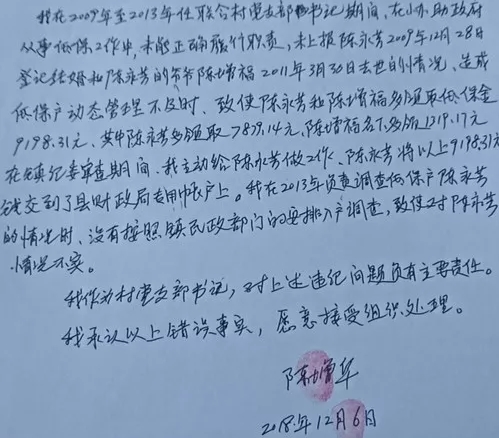 我在2009年至2013年任联合村党支部书记期间,在协助政府
从事低保工作中,未能正确履行职责,未上报陈永芳2009年12月28日
登记结婚和陈永芳的爷爷陈增福2011年3月30日去世的情况,造成
低保户动态管理不及时,致使陈永芳和陈增福多领取低保金
9198.31元,其中陈永芳多领取7879.14元,陈增福名下多领1319.17元
在镇纪委审查期间,我主动给陈永芳做工作,陈永芳将以上9198.31元
钱交到了县财政局专用帐户上。我在2013年负责调查低保户陈永芳
的情况时,没有按照镇民政部门的安排入户调查,致使对陈永芳
情况不实。
我作为村党支部书记,对上述违纪问题负有主要责任。
我承认以上错误事实,愿意接受组织处理。
陈增华
2018年12月6日